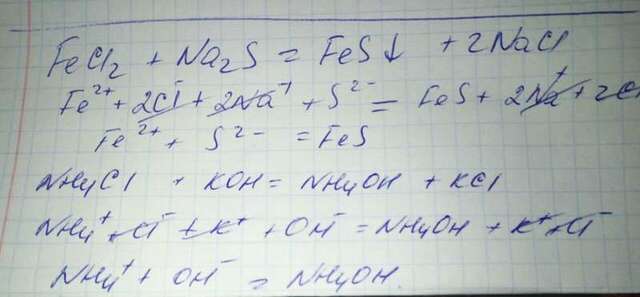 FeCl₂ + Na₂S = FeS↓ + 2NaCl
Fe²⁺ + 2Cl⁻ + 2Na⁺ + S²⁻ = FeS + 2Na⁺ + 2Cl
Fe²⁺ + S²⁻ = FeS
NH₄Cl + KOH = NH₄OH + KCl
NH₄⁺ + Cl⁻ + K⁺ + OH⁻ = NH₄OH + K⁺ + Cl⁻
NH₄⁺ + OH⁻ = NH₄OH.